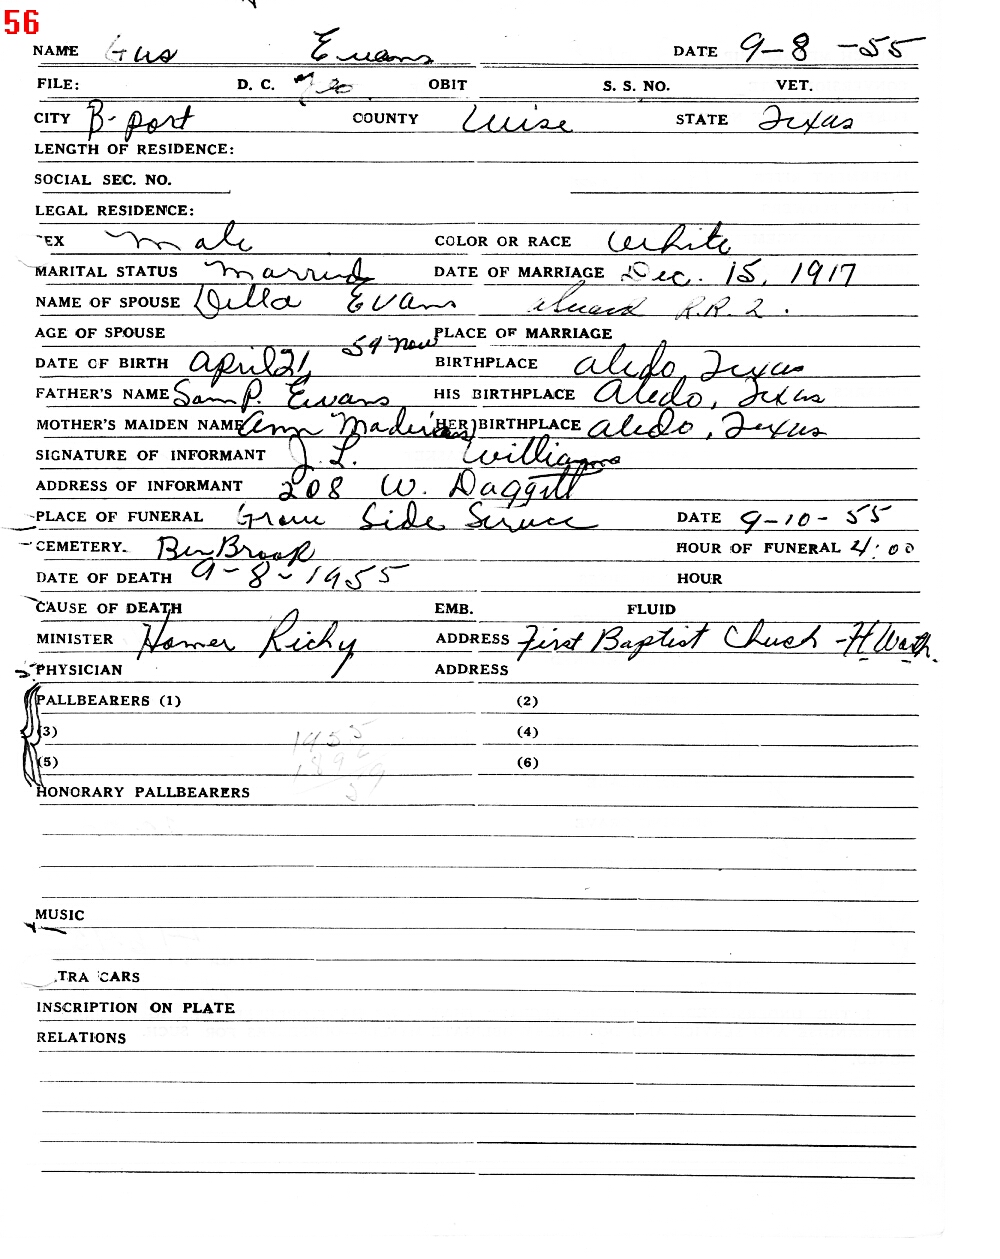 56
NAME Gus Evans DATE 9-8-55
FILE: D. C. OBIT S. S. NO. VET.
CITY B-port COUNTY Wise STATE Texas
LENGTH OF RESIDENCE:
SOCIAL SEC. NO.
LEGAL RESIDENCE:
EX Male COLOR OR RACE White
MARITAL STATUS Married DATE OF MARRIAGE Dec. 15, 1917
NAME OF SPOUSE Della Evans R.R. 2.
AGE OF SPOUSE 59 now PLACE OF MARRIAGE
DATE OF BIRTH April 21, BIRTHPLACE Aledo, Texas
FATHER'S NAME Sam P. Evans HIS BIRTHPLACE Aledo, Texas
MOTHER'S MAIDEN NAME Ann (HER) BIRTHPLACE Aledo, Texas
SIGNATURE OF INFORMANT J. L. Williams
ADDRESS OF INFORMANT 208 W. Daggett
PLACE OF FUNERAL Grave Side Service DATE 9-10-55
CEMETERY. Ben Brook HOUR OF FUNERAL 4:00
DATE OF DEATH 9-8-1955 HOUR
CAUSE OF DEATH EMB. FLUID
MINISTER Homer Richy ADDRESS First Baptist Chuch - Ft. Worth.
PHYSICIAN ADDRESS
PALLBEARERS (1) (2)
(3) (4)
1955
(5) (6)
59
HONORARY PALLBEARERS
MUSIC
TRA CARS
INSCRIPTION ON PLATE
RELATIONS